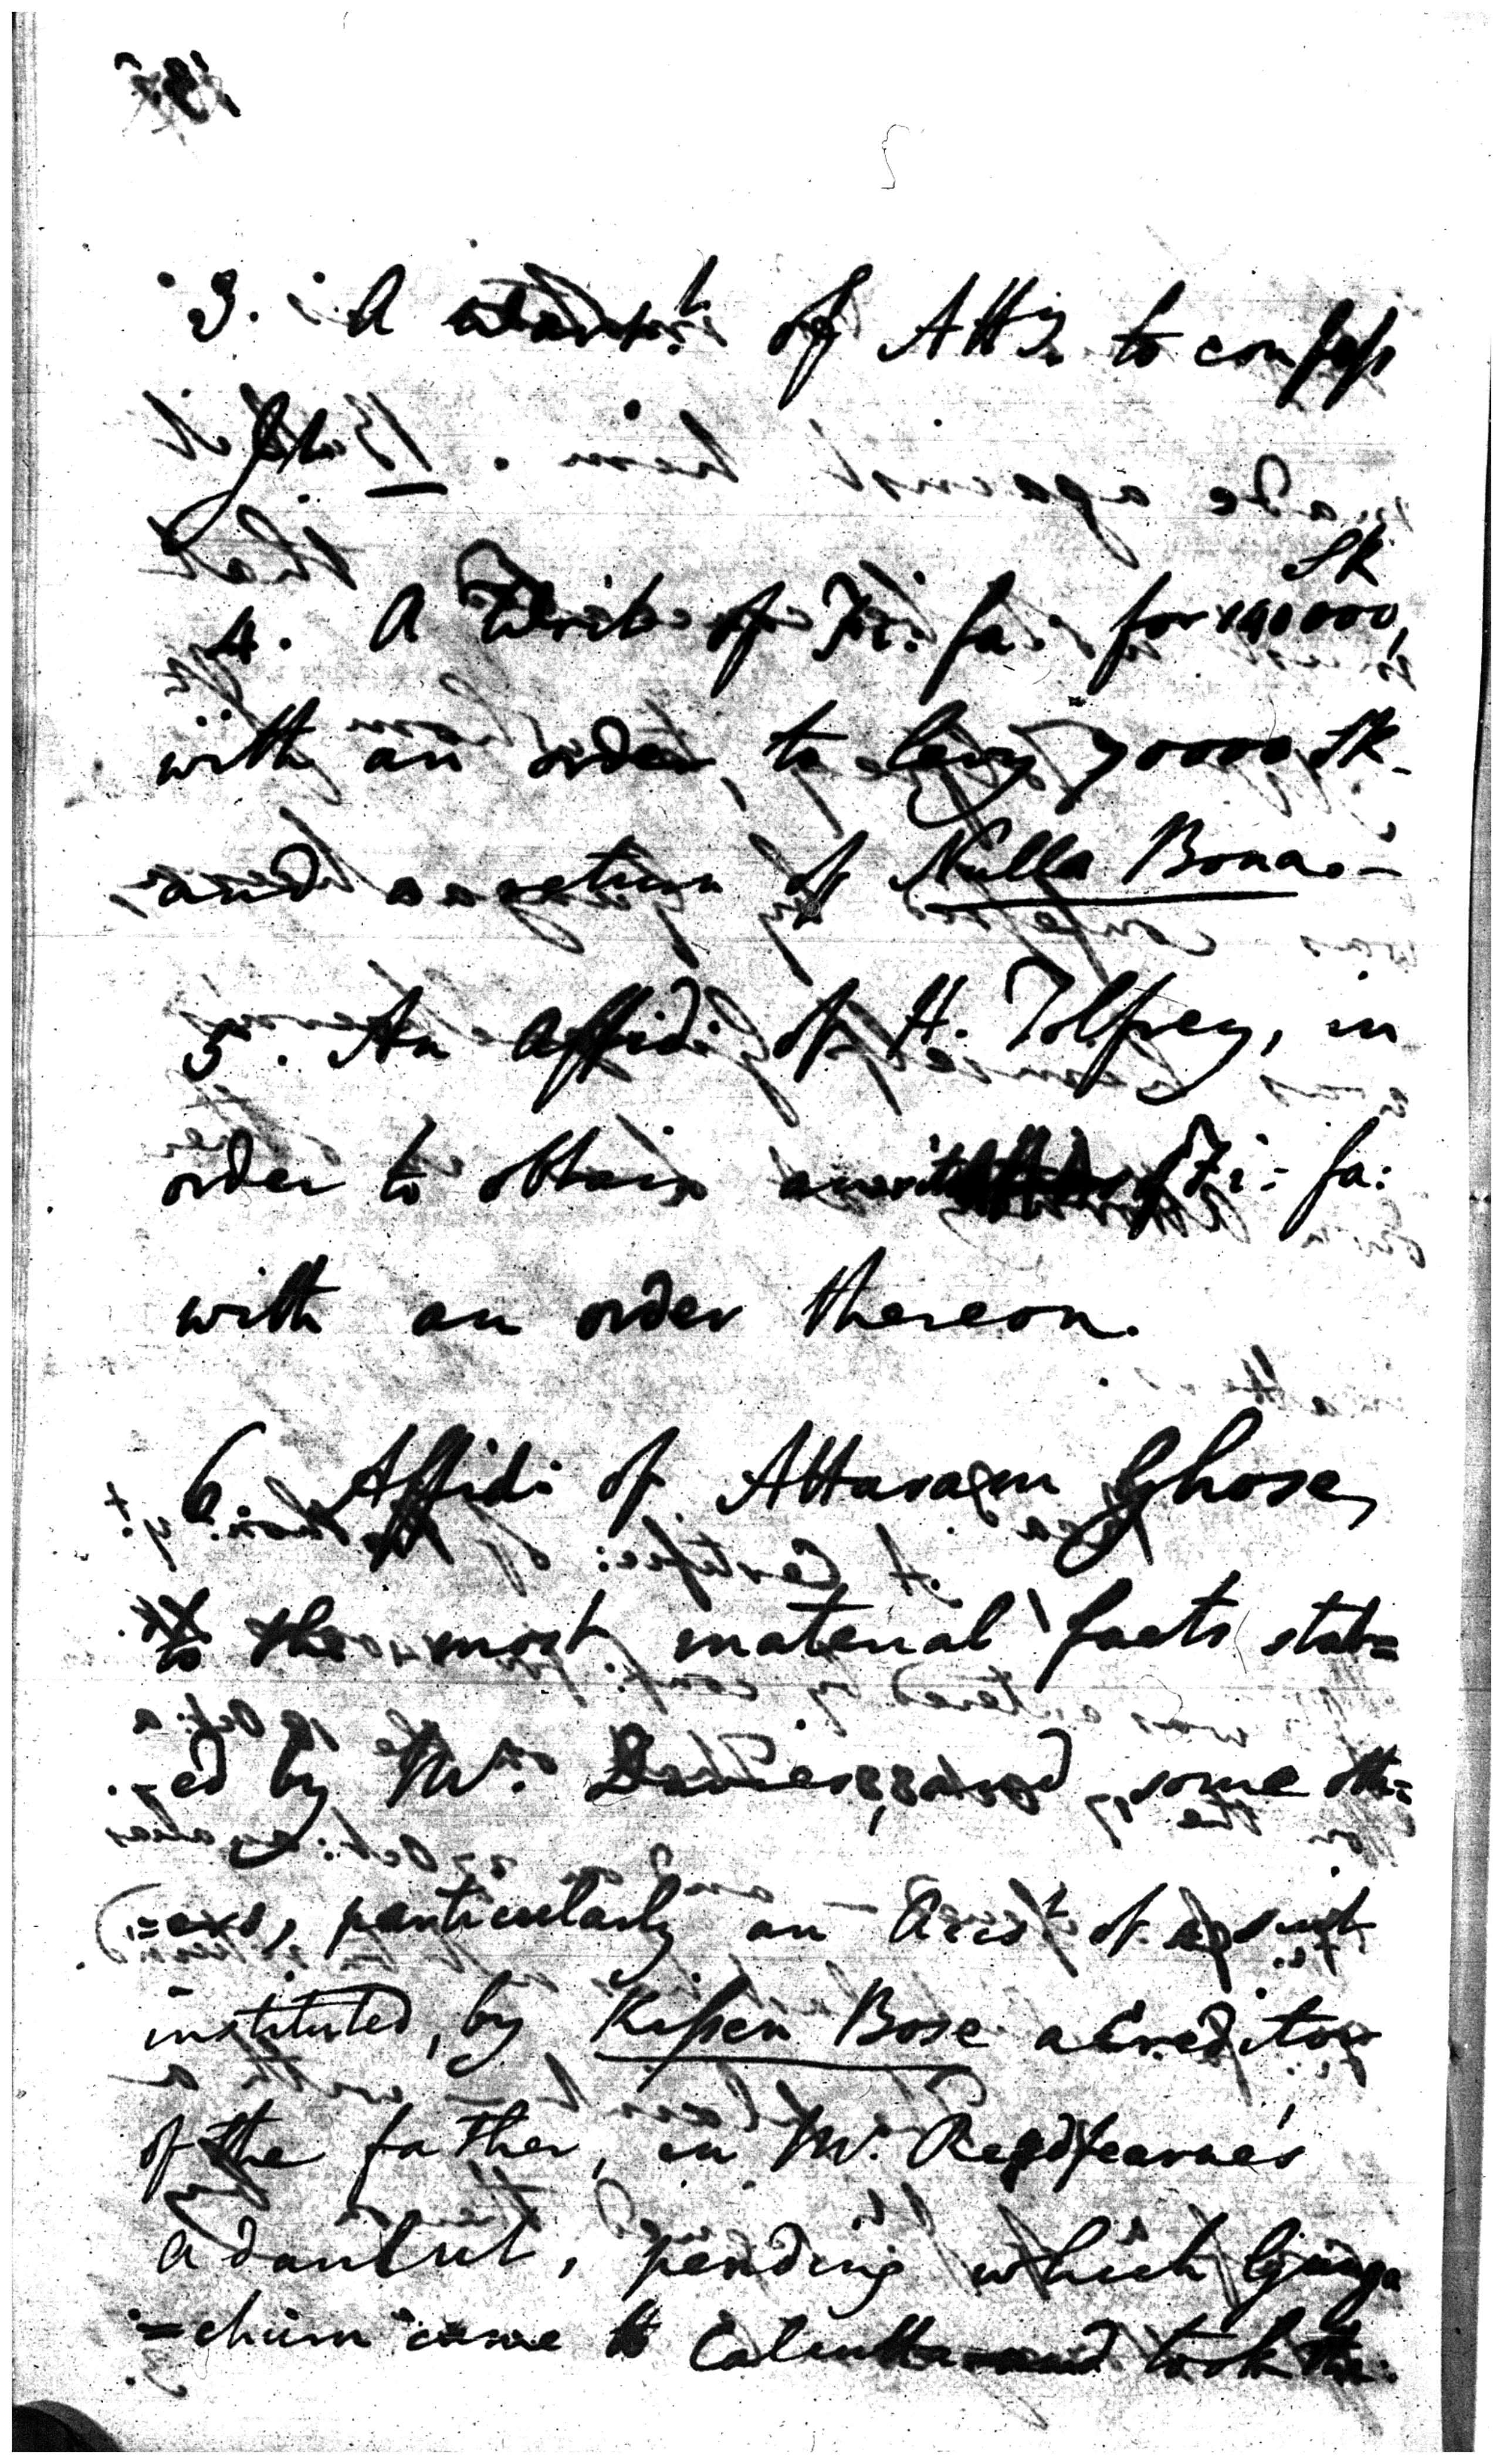 3. A warr.t of Att.y to confess
Jt. —
SR
4. A Writ of Fi: fa: for 140000,
with an order, to levy 70000 SR.
and a return of Nulla Bona. —
5. An Affid: of H. Tolfrey, in
order to obtain a writ of Fi: fa:
with an order thereon.
6. Affid: of Attaram Ghose,
to the most material facts stat=
=ed by Mr. Davies, and some oth=
=ers, particularly an acct. of a suit
instituted, by Kissen Bose a Creditor
of the father, in Mr. Redfearne's
adaulut, pending which Gunga
=churn came to Calcutta and took the